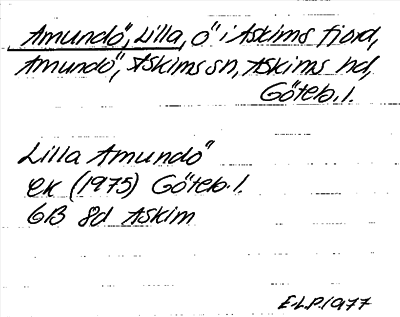 Amundö, Lilla, ö i Askims fjord,
Amundö, Askims sn, Askims hd,
Göteb. l.
Lilla Amundö
ek (1975) Göteb. l.
6B 8d Askim
E.L.P. 1977